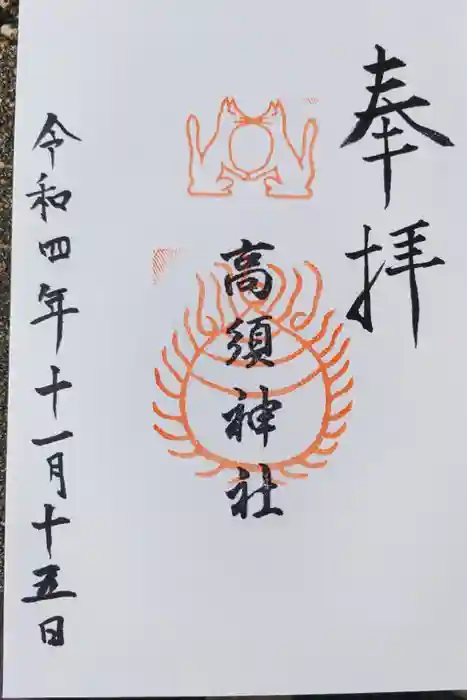 奉拝
高須神社
令和四年十一月十五日